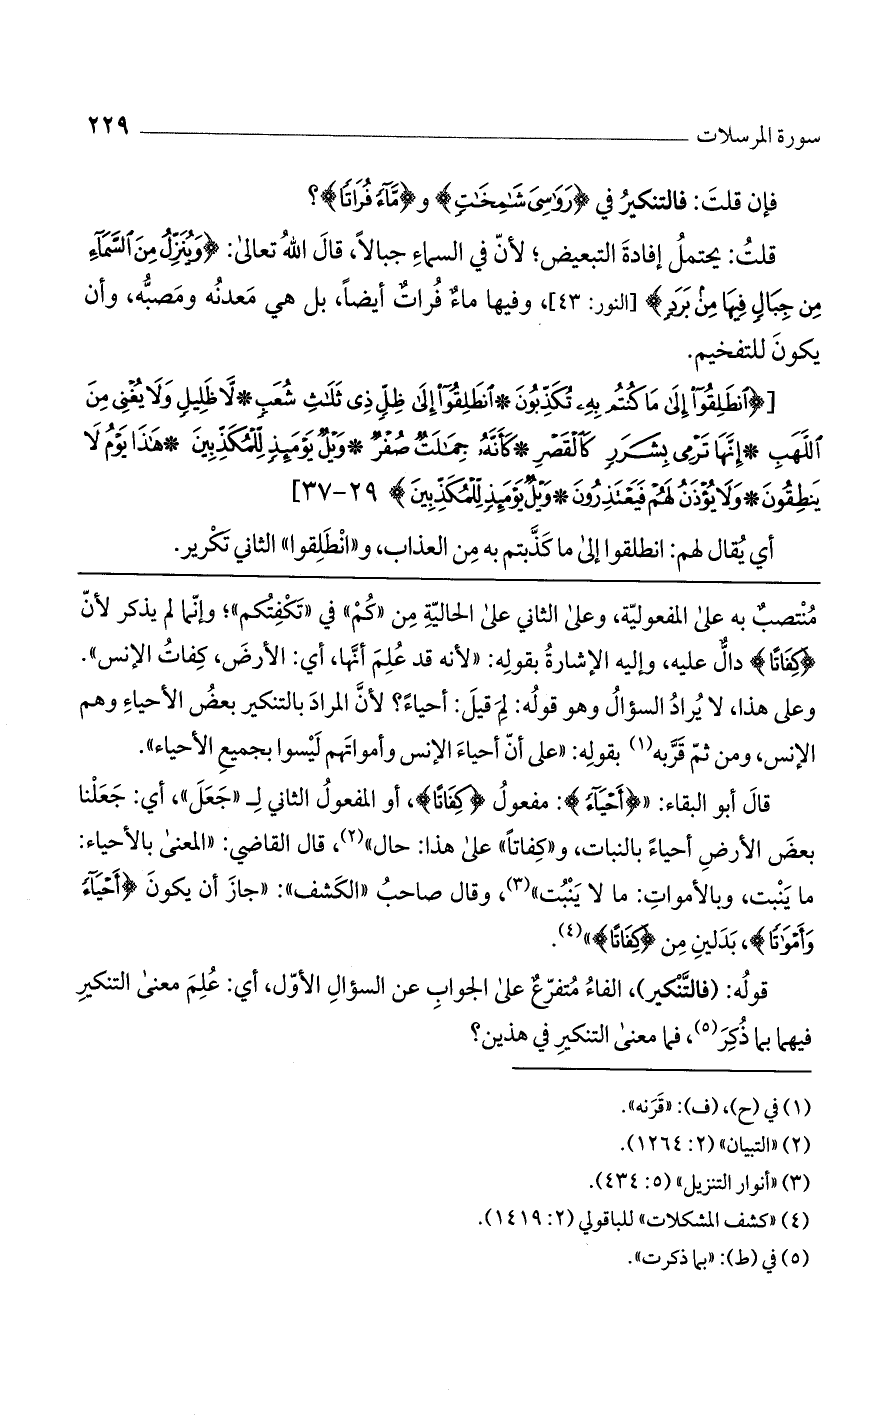 سورة المرسلات ٢٢٩
فإن قلتَ: فالتنكيرُ في ﴿رَوَٰسِيَ شَٰمِخَٰتٍ﴾ و﴿مَّآءً فُرَاتًا﴾؟
قلتُ: يحتملُ إفادةَ التبعيض؛ لأنّ في السماءِ جبالاً، قالَ اللهُ تعالىٰ: ﴿وَيُنَزِّلُ مِنَ ٱلسَّمَآءِ
مِن جِبَالٍ فِيهَا مِنۢ بَرَدٍ﴾ [النور: ٤٣]، وفيها ماءٌ فُراتٌ أيضاً، بل هي مَعدنُه ومَصبُّه، وأن
يكونَ للتفخيم.
[﴿ٱنطَلِقُوٓاْ إِلَىٰ مَا كُنتُم بِهِۦ تُكَذِّبُونَ * ٱنطَلِقُوٓاْ إِلَىٰ ظِلٍّ ذِى ثَلَٰثِ شُعَبٍ * لَّا ظَلِيلٍ وَلَا يُغْنِى مِنَ
ٱللَّهَبِ * إِنَّهَا تَرْمِى بِشَرَرٍ كَٱلْقَصْرِ * كَأَنَّهُۥ جِمَٰلَتٌ صُفْرٌ * وَيْلٌ يَوْمَئِذٍ لِّلْمُكَذِّبِينَ * هَٰذَا يَوْمُ لَا
يَنطِقُونَ * وَلَا يُؤْذَنُ لَهُمْ فَيَعْتَذِرُونَ * وَيْلٌ يَوْمَئِذٍ لِّلْمُكَذِّبِينَ﴾ ٢٩-٣٧]
أي يُقال لهم: انطلقوا إلىٰ ما كَذَّبتم به مِن العذاب، و«انْطَلِقوا» الثاني تَكْرير.
مُنْتصبٌ به علىٰ المفعوليّة، وعلىٰ الثاني علىٰ الحاليّةِ مِن «كُمْ» في «تَكْفِتُكم»؛ وإنّما لم يذكر لأنّ
﴿كِفَاتًا﴾ دالٌّ عليه، وإليه الإشارةُ بقولِه: «لأنه قد عُلِمَ أنّها، أي: الأرضَ، كِفاتُ الإنس».
وعلى هذا، لا يُرادُ السؤالُ وهو قولُه: لِمَ قيلَ: أحياءً؟ لأنَّ المرادَ بالتنكير بعضُ الأحياءِ وهم
الإنس، ومن ثمّ قَرَّبه(١) بقولِه: «على أنّ أحياءَ الإنس وأمواتَهم لَيْسوا بجميعِ الأحياء».
قالَ أبو البقاء: «﴿أَحْيَآءً﴾: مفعولُ ﴿كِفَاتًا﴾، أو المفعولُ الثاني لـ «جَعَلَ»، أي: جَعَلْنا
بعضَ الأرضِ أحياءً بالنبات، و«كِفاتاً» علىٰ هذا: حال»(٢)، قال القاضي: «المعنىٰ بالأحياء:
ما يَنْبت، وبالأمواتِ: ما لا يَنْبُت»(٣)، وقال صاحبُ «الكَشف»: «جازَ أن يكونَ ﴿أَحْيَآءً
وَأَمْوَٰتًا﴾، بَدَلينِ مِن ﴿كِفَاتًا﴾»(٤).
قولُه: (فالتَّنْكير)، الفاءُ مُتفرّعٌ علىٰ الجوابِ عن السؤالِ الأوّل، أي: عُلِمَ معنىٰ التنكيرِ
فيهما بما ذُكِرَ(٥)، فما معنىٰ التنكيرِ في هذين؟
(١) في (ح)، (ف): «قَرَنه».
(٢) «التبيان» (٢: ١٢٦٤).
(٣) «أنوار التنزيل» (٥: ٤٣٤).
(٤) «كشف المشكلات» للباقولي (٢: ١٤١٩).
(٥) في (ط): «بما ذكرت».